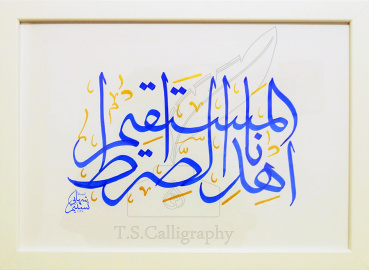 اهدنا الصراط المستقيم
T.S.Calligraphy